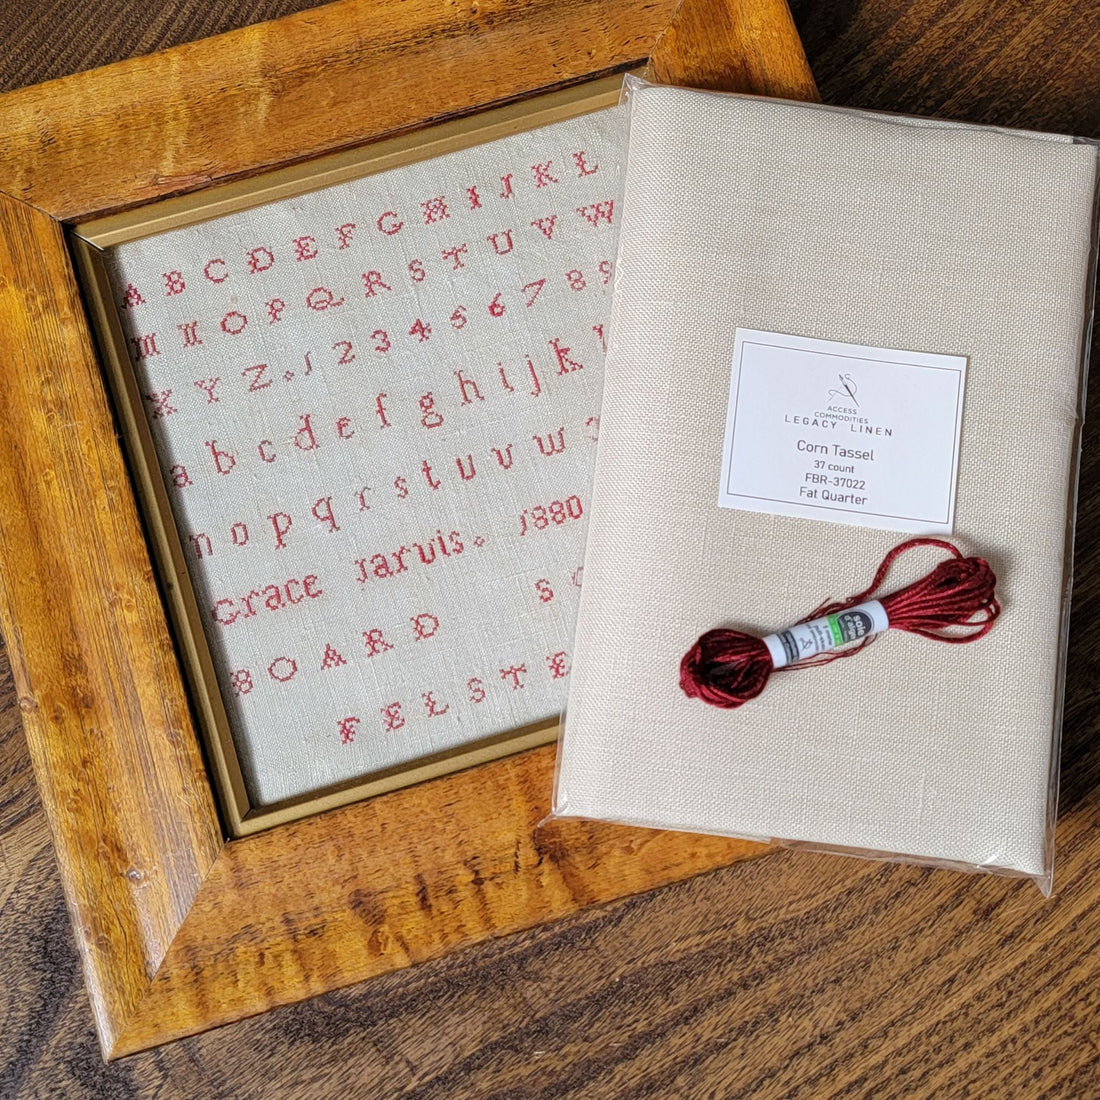 A B C D E F G H I J K L
M N O P Q R S T U V W
X Y Z . 1 2 3 4 5 6 7 8 9
a b c d e f g h i j k l
n o p q r s t u v w
Grace Jarvis. 1880
BOARD SC
FELSTE
ACCESS
COMMODITIES
LEGACY LINEN
Corn Tassel
37 count
FBR-37022
Fat Quarter
soie
d'alger